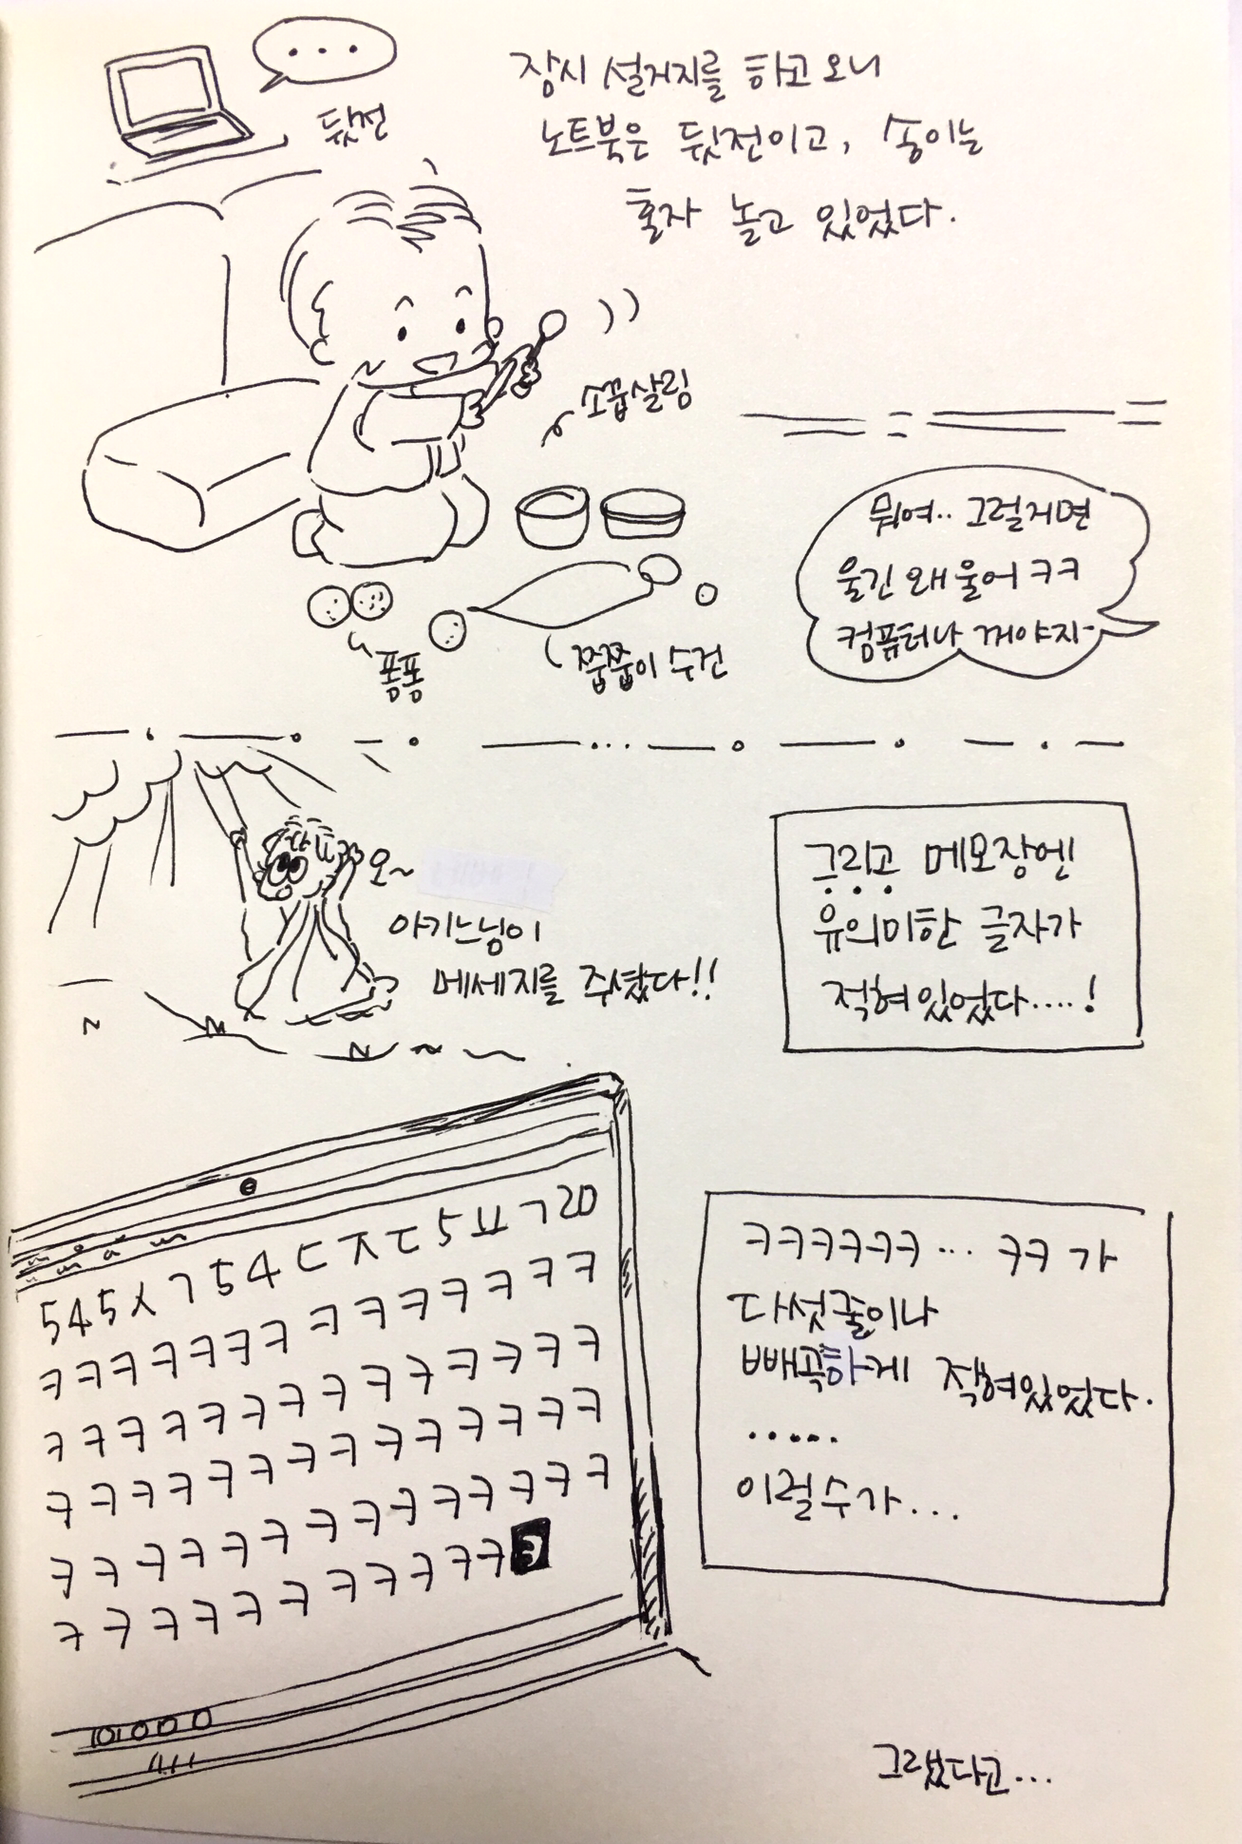 ...
뒷전
잠시 설거지를 하고 오니
노트북은 뒷전이고, 송이는
혼자 놀고 있었다.
소꿉살림
뭐여.. 그럴게면
울긴 왜 울어 ㅋㅋ
컴퓨터나 꺼야지~
퐁퐁
쭙쭙이 수건
오~
아기느님이
메세지를 주셨다!!
그리고 메모장엔!
유의미한 글자가
적혀있었다....!
545ㅅㄱ54ㄷㅈㄷ5ㅛㄱ20
ㅋㅋㅋㅋㅋㅋㅋㅋㅋㅋㅋㅋㅋㅋ
ㅋㅋㅋㅋㅋㅋㅋㅋㅋㅋㅋㅋㅋㅋ
ㅋㅋㅋㅋㅋㅋㅋㅋㅋㅋㅋㅋㅋㅋ
ㅋㅋㅋㅋㅋㅋㅋㅋㅋㅋㅋㅋㅋㅋ
ㅋㅋㅋㅋㅋㅋㅋㅋㅋㅋㅋㅋ
ㅋㅋㅋㅋㅋㅋ... ㅋㅋ 가
다섯줄이나
빼곡하게 적혀있었다.
......
이럴수가...
그랬다고...